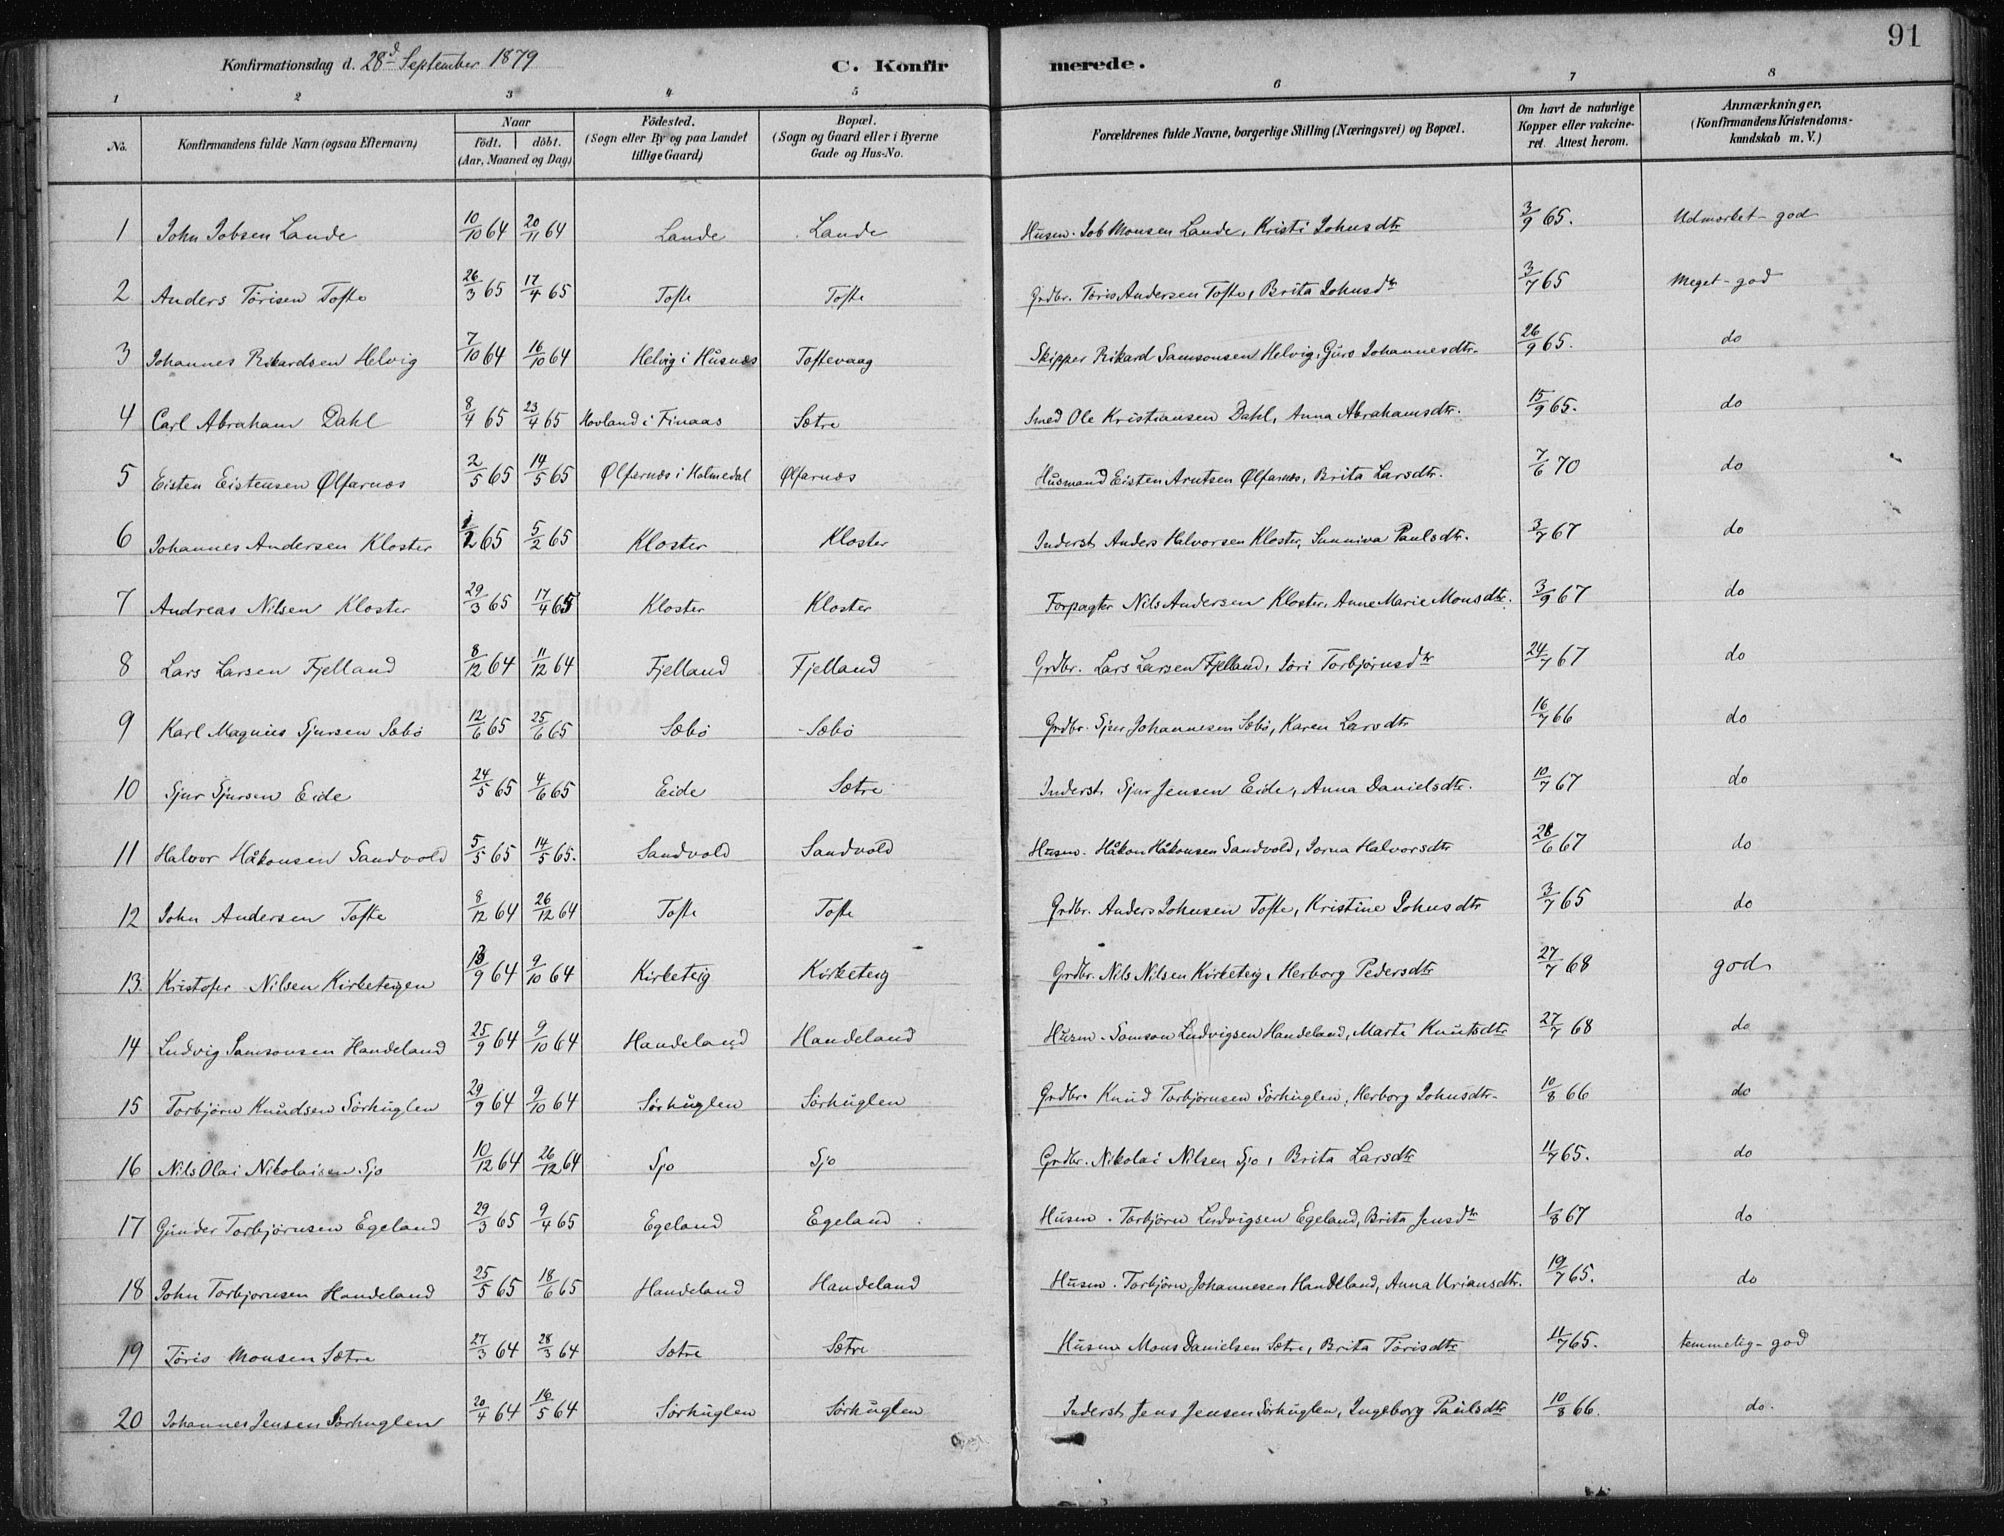 91
Konfirmationsdag d. 28d September 1879 C. Konfir merede.
1 2 3 4 5 6 7 8
No. Konfirmandens fulde Navn (ogsaa Efternavn) Naar födt. döbt. (Aar, Maaned og Dag) Födested. (Sogn eller By og paa Landet tillige Gaard) Bopæl. (Sogn og Gaard eller i Byerne Gade og Hus-No. Forældrenes fulde Navne, borgerlige Stilling (Næringsvei) og Bopæl. Om havt de naturlige Kopper eller vakcineret. Attest herom. Anmærkninger. (Konfirmandens Kristendomskundskab m. V.)
1 John Jobsen Lande 10/10 64 20/11 64 Lande Lande Husm. Job Monsen Lande, Kristi Johnsdtr 3/9 65. Udmærket god
2 Anders Törisen Tofte 26/3 65 17/4 65 Tofte Tofte Grdbr. Töris Andersen Tofte, Brita Johnsdtr 3/7 65 Meget-god
3 Johannes Rikardsen Helvig 7/10 64 16/10 64 Helvig i Husnæs Toftevaag Skipper Rikard Samsonsen Helvig, Guro Johannesdtr. 26/9 65. do
4 Carl Abraham Dahl 8/4 65 23/4 65 Hovland i Finaas Sætre Smed Ole Kristiansen Dahl, Anna Abrahamsdtr. 15/9 65. do
5 Eisten Eistensen Ølfarnæs 2/5 65 14/5 65 Ølfarnæs i Holmedal Ølfarnæs Husmand Eisten Arntsen Ølfarnæs, Brita Larsdtr. 7/6 70 do
6 Johannes Andersen Kloster 1/2 65 5/2 65 Kloster Kloster Inderst Anders Halvorsen Kloster, Sunniva Paulsdtr. 3/7 67 do
7 Andreas Nilsen Kloster 29/3 65 17/4 65 Kloster Kloster Forpagter Nils Andersen Kloster, Anne Marie Monsdtr. 3/9 67 do
8 Lars Larsen Fjelland 8/12 64 11/12 64 Fjelland Fjelland Grdbr. Lars Larsen Fjelland, Söri Torbjörnsdtr 24/7 67 do
9 Karl Magnus Sjursen Sæbö 12/6 65 25/6 65 Sæbö Sæbö Grdbr. Sjur Johannesen Sæbö, Karen Larsdtr 16/7 66 do
10 Sjur Sjursen Eide 24/5 65 4/6 65 Eide Sætre Inderst Sjur Jensen Eide, Anna Danielsdtr. 10/7 67 do
11 Halvor Håkonsen Sandvold 5/5 65 14/5 65. Sandvold Sandvold Husm. Håkon Håkonsen Sandvold, Jorna Halvorsdtr 28/6 67 do
12 John Andersen Tofte 8/12 64 26/12 64 Tofte Tofte Grdbr. Anders Johnsen Tofte, Kristine Johnsdtr 3/7 65 do
13. Kristofer Nilsen Kirketeigen 13/9 64 9/10 64 Kirketeig Kirketeig Grdbr. Nils Nilsen Kirketeig, Herborg Pedersdtr 27/7 68 god
14 Ludvig Samsonsen Handeland 25/9 64 9/10 64 Handeland Handeland Husm. Samson Ludvigsen Handeland, Marta Knutsdtr 27/7 68 do
15 Torbjörn Knudsen Sörhuglen 29/9 64 9/10 64 Sörhuglen Sörhuglen Grdbr. Knud Torbjörnsen Sörhuglen, Herborg Johnsdtr. 10/8 66 do
16 Nils Olai Nikolaisen Sjo 10/12 64 26/12 64 Sjo Sjo Grdbr. Nikolai Nilsen Sjo, Brita Larsdtr 11/7 65. do
17 Gunder Torbjörnsen Egeland 29/3 65 9/4 65 Egeland Egeland Husm. Torbjörn Ludvigsen Egeland, Brita Jensdtr 1/8 67 do
18 John Torbjörnsen Handeland 25/5 65 18/6 65 Handeland Handeland Husm. Torbjörn Johannesen Handeland, Anna Uriansdtr. 19/7 65. do
19 Töris Monsen Sætre 27/3 64 28/3 64 Sætre Sætre Husm Mons Danielsen Sætre, Brita Törisdtr 11/7 65. temmelig-god
20 Johannes Jensen Sörhuglen 20/4 64 16/5 64 Sörhuglen Sörhuglen Inderst Jens Jensen Sörhuglen, Ingeborg Paulsdtr 10/8 66. do.